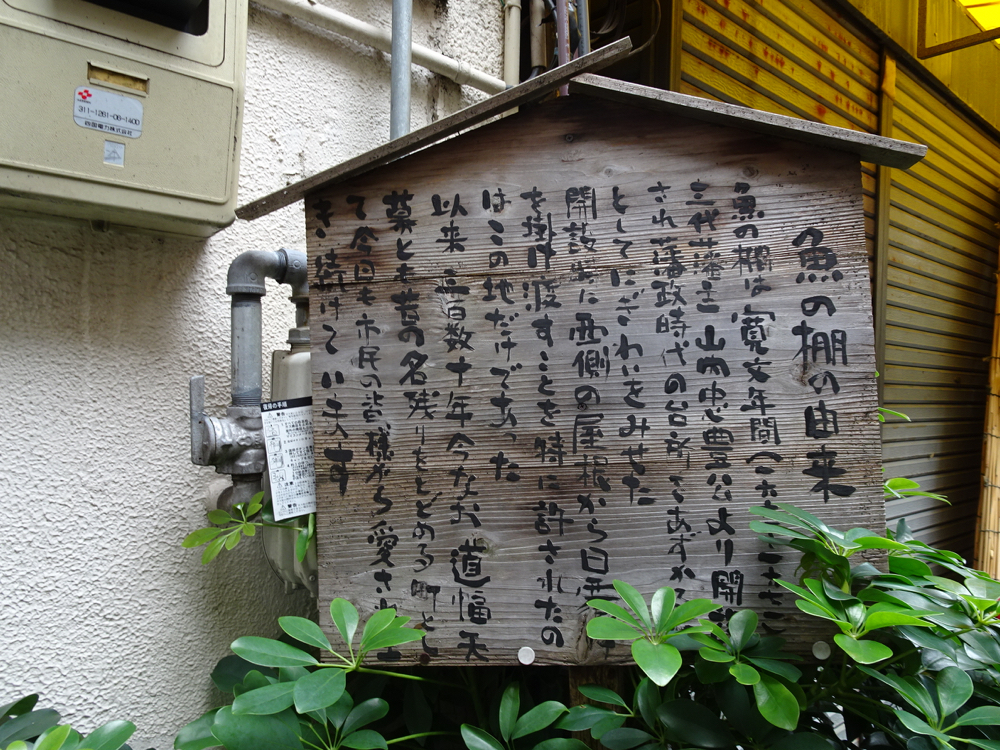 魚の棚の由来
魚の棚は寛文年間(一六
三代藩主 山内忠豊公より開
され藩政時代の台所をあずか
としてにぎわいをみせた
開設に西側の屋根から日
を掛け渡すことを特に許されたの
はこの地だけであった
以来 三百数十年今なお 道幅 天
幕とも昔の名残りをとどめる町とし
て今日も市民の皆様から愛され生
き続けています
311-1281-06-1600
四国電力株式会社
復帰の手順